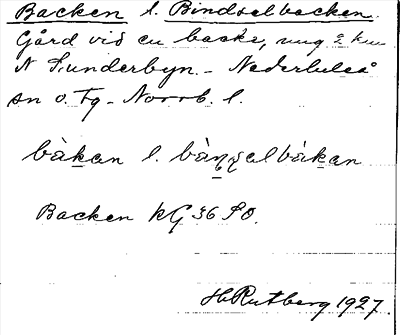 Backen l. Bindselbacken.
Gård vid en backe, ung 2 km
N Sunderbyn. - Nederluleå
sn o. Tg - Norrb. l.
bàkan l. bàn̥sel bàkan
Backen KG 36 SO.
HRutberg 1927.